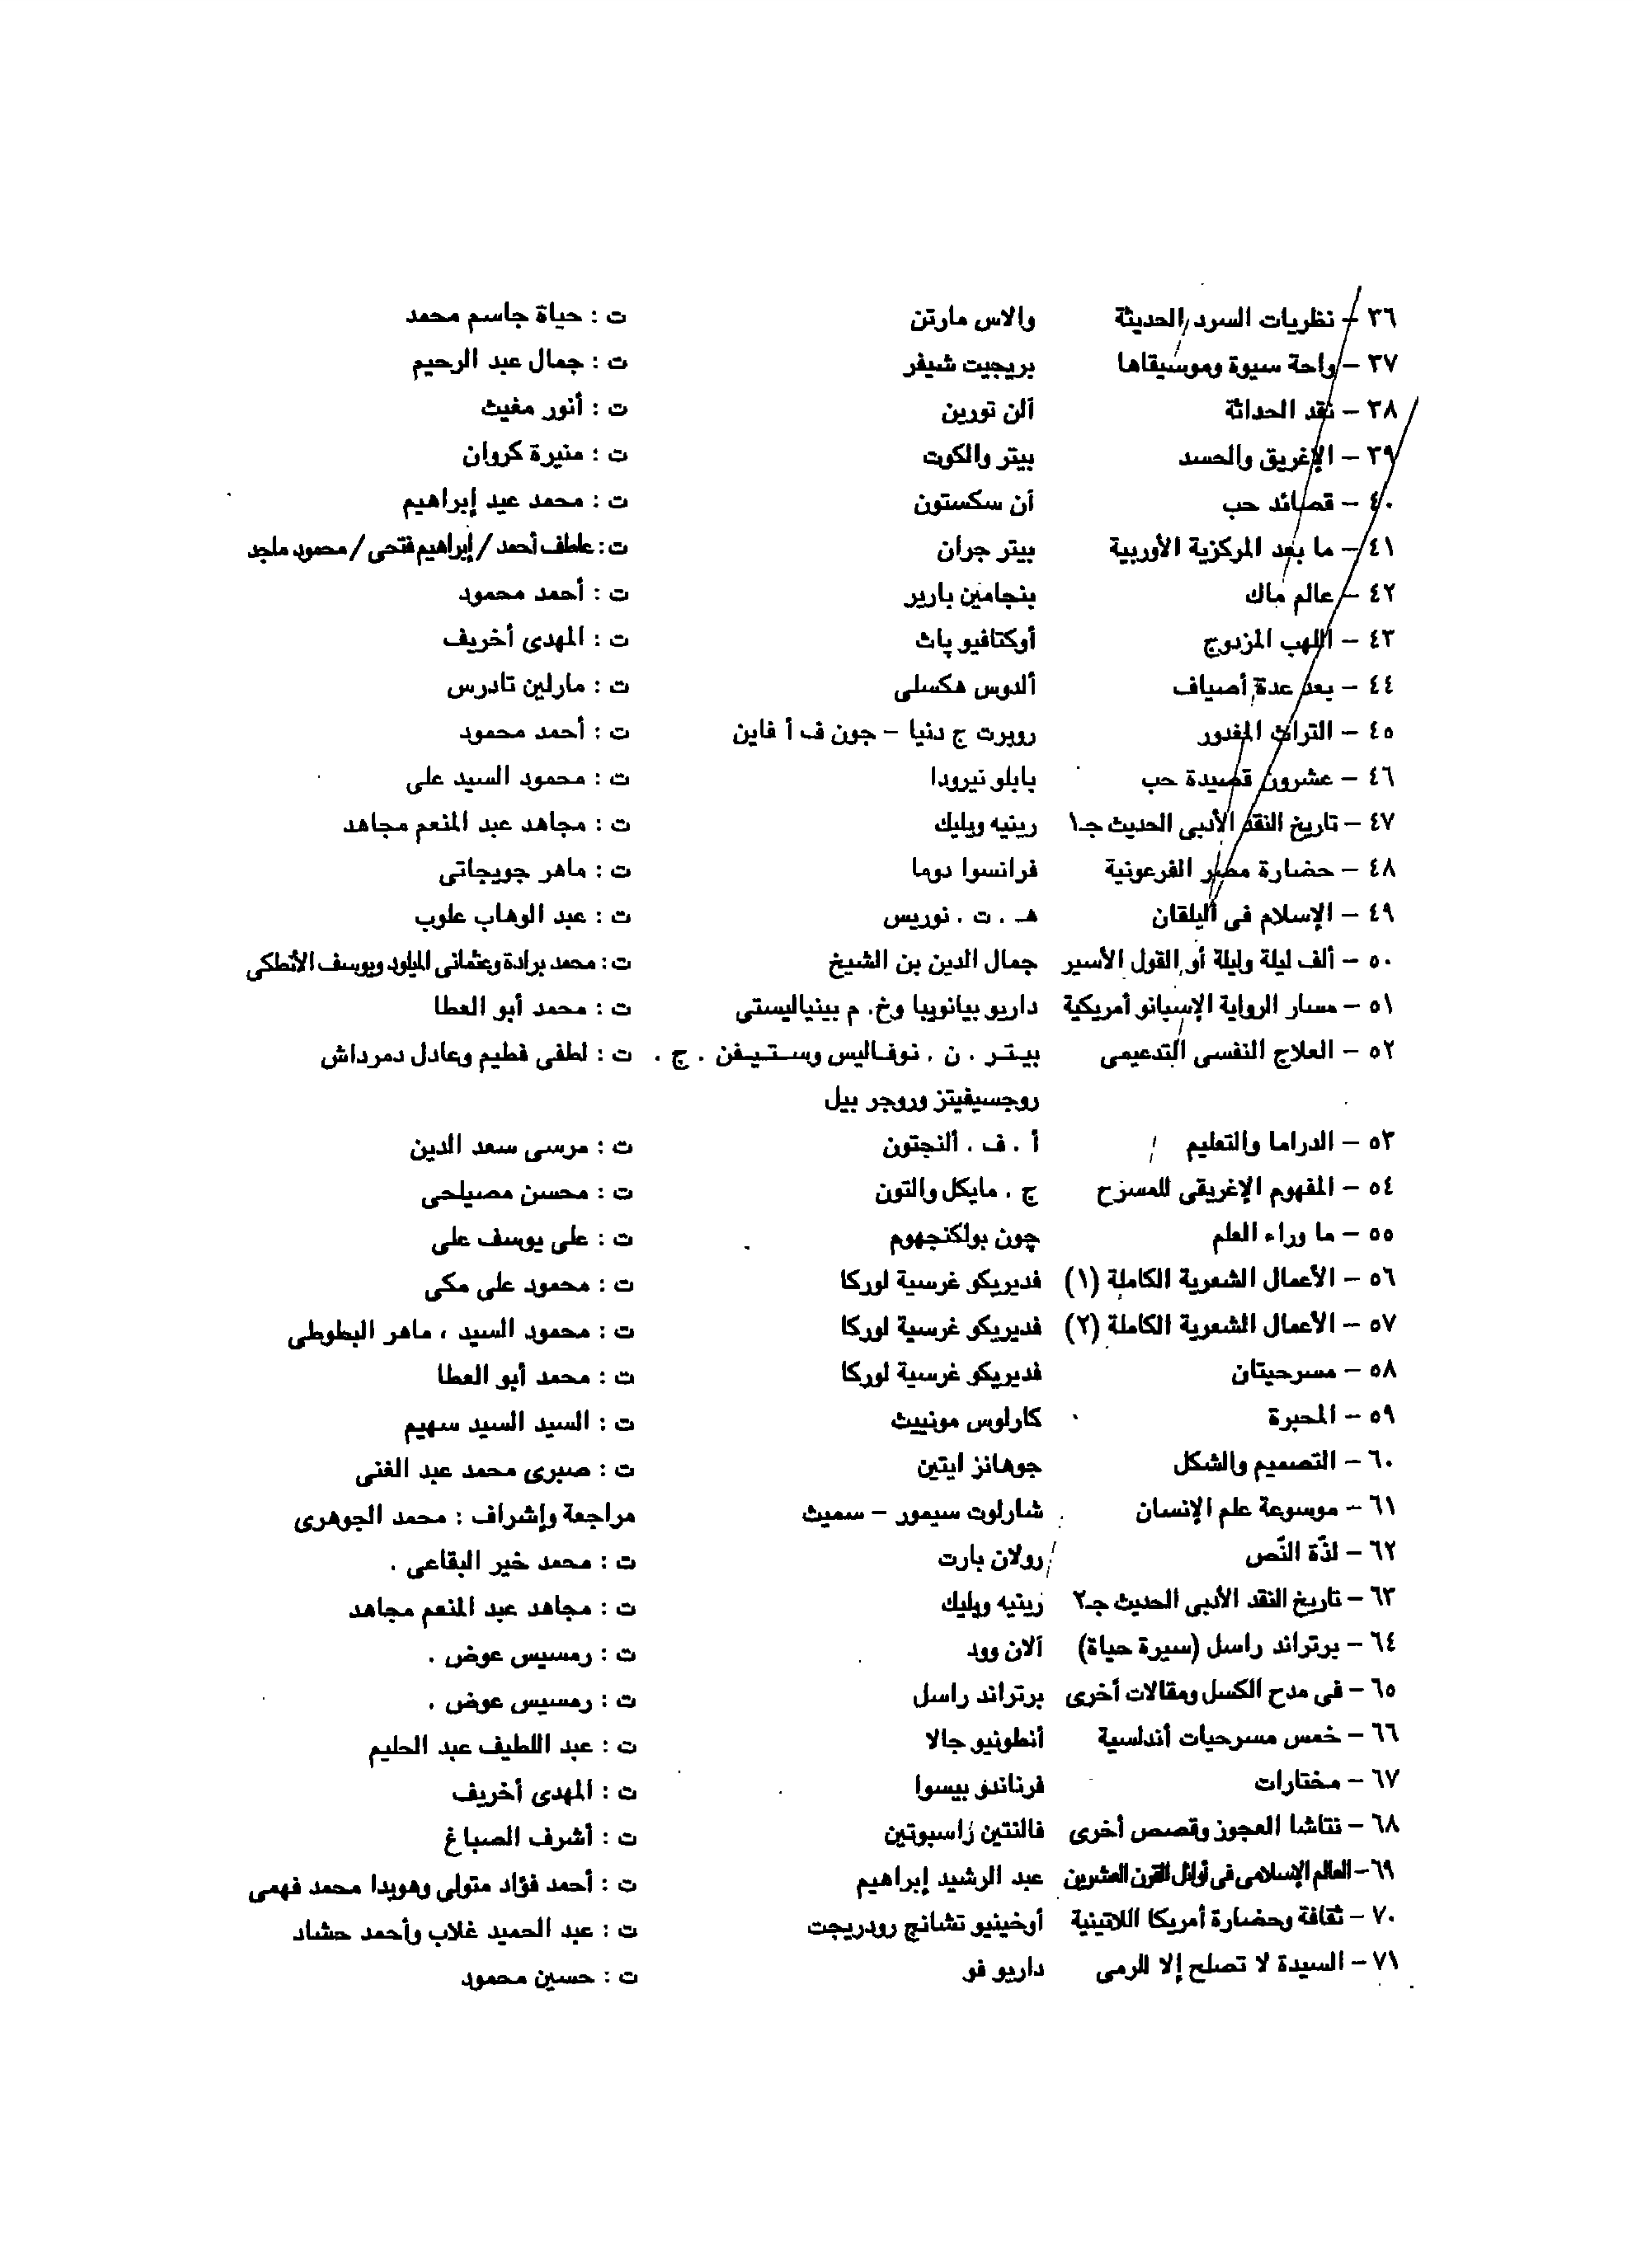 ٣٦ – نظريات السرد الحديثة والاس مارتن ت : حياة جاسم محمد
٣٧ – واحة سيوة وموسيقاها بريجيت شيفر ت : جمال عبد الرحيم
٣٨ – نقد الحداثة آلن تورين ت : أنور مغيث
٣٩ – الإغريق والحسد بيتر والكوت ت : منيرة كروان
٤٠ – قصائد حب آن سكستون ت : محمد عيد إبراهيم
٤١ – ما بعد المركزية الأوربية بيتر جران ت : عاطف أحمد / إبراهيم فتحى / محمود ماجد
٤٢ – عالم ماك بنجامين بارير ت : أحمد محمود
٤٣ – اللهب المزدوج أوكتافيو پاث ت : المهدى أخريف
٤٤ – بعد عدة أصياف ألدوس هكسلى ت : مارلين تادرس
٤٥ – التراث المغدور روبرت ج دنيا – جون ف أ فاين ت : أحمد محمود
٤٦ – عشرون قصيدة حب بابلو نيرودا ت : محمود السيد على
٤٧ – تاريخ النقد الأدبى الحديث جـ١ رينيه ويليك ت : مجاهد عبد المنعم مجاهد
٤٨ – حضارة مصر الفرعونية فرانسوا دوما ت : ماهر جويجاتى
٤٩ – الإسلام فى البلقان هـ . ت . نوريس ت : عبد الوهاب علوب
٥٠ – ألف ليلة وليلة أو القول الأسير جمال الدين بن الشيخ ت : محمد برادة وعثمانى الميلود ويوسف الأنطكى
٥١ – مسار الرواية الإسبانو أمريكية داريو بيانويبا وخ. م بينياليستى ت : محمد أبو العطا
٥٢ – العلاج النفسى التدعيمى بيتر . ن . نوفاليس وستيفن . ج . ت : لطفى فطيم وعادل دمرداش
روجسيفيتز وروجر بيل
٥٣ – الدراما والتعليم أ . ف . ألنجتون ت : مرسى سعد الدين
٥٤ – المفهوم الإغريقى للمسرح ج . مايكل والتون ت : محسن مصيلحى
٥٥ – ما وراء العلم چون بولكنجهوم ت : على يوسف على
٥٦ – الأعمال الشعرية الكاملة (١) فديريكو غرسية لوركا ت : محمود على مكى
٥٧ – الأعمال الشعرية الكاملة (٢) فديريكو غرسية لوركا ت : محمود السيد ، ماهر البطوطى
٥٨ – مسرحيتان فديريكو غرسية لوركا ت : محمد أبو العطا
٥٩ – المحبرة كارلوس مونييث ت : السيد السيد سهيم
٦٠ – التصميم والشكل جوهانز ايتين ت : صبرى محمد عبد الغنى
٦١ – موسوعة علم الإنسان شارلوت سيمور – سميث مراجعة وإشراف : محمد الجوهرى
٦٢ – لذّة النّص رولان بارت ت : محمد خير البقاعى .
٦٣ – تاريخ النقد الأدبى الحديث جـ٢ رينيه ويليك ت : مجاهد عبد المنعم مجاهد
٦٤ – برتراند راسل (سيرة حياة) آلان وود ت : رمسيس عوض .
٦٥ – فى مدح الكسل ومقالات أخرى برتراند راسل ت : رمسيس عوض .
٦٦ – خمس مسرحيات أندلسية أنطونيو جالا ت : عبد اللطيف عبد الحليم
٦٧ – مختارات فرناندو بيسوا ت : المهدى أخريف
٦٨ – نتاشا العجوز وقصص أخرى فالنتين راسبوتين ت : أشرف الصباغ
٦٩ – العالم الإسلامى فى أوائل القرن العشرين عبد الرشيد إبراهيم ت : أحمد فؤاد متولى وهويدا محمد فهمى
٧٠ – ثقافة وحضارة أمريكا اللاتينية أوخينيو تشانج رودريجت ت : عبد الحميد غلاب وأحمد حشاد
٧١ – السيدة لا تصلح إلا للرمى داريو فو ت : حسين محمود